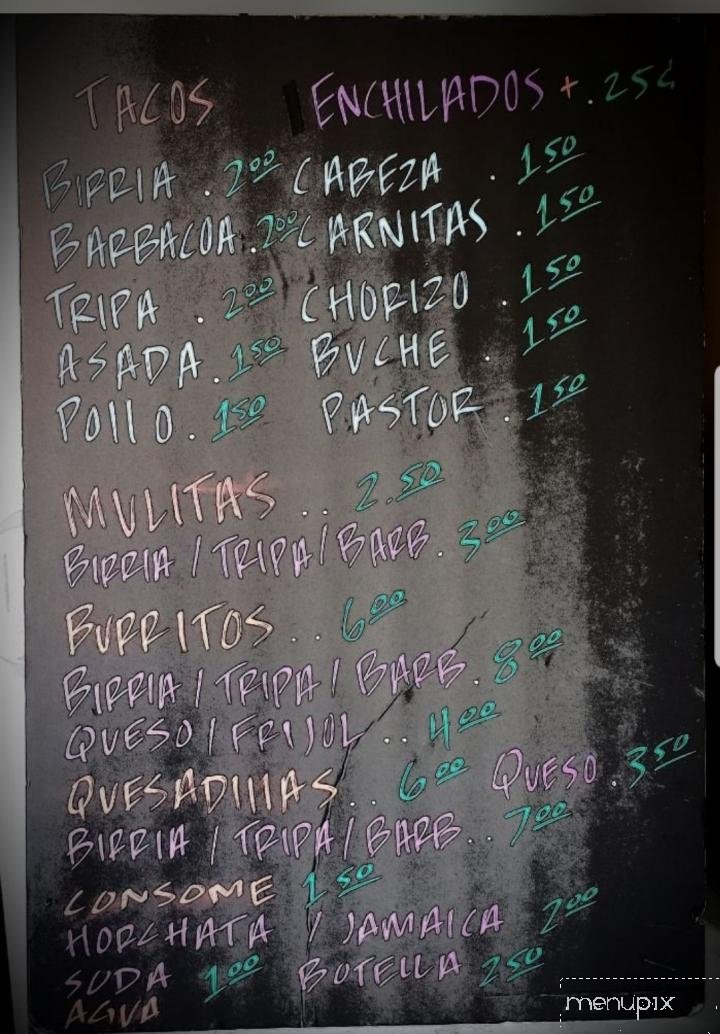 TACOS ENCHILADOS +.25¢
BIRRIA . 2.00 CABEZA . 1.50
BARBACOA . 2.00 CARNITAS . 1.50
TRIPA . 2.00 CHORIZO . 1.50
ASADA . 1.50 BUCHE . 1.50
POLLO . 1.50 PASTOR . 1.50
MULITAS .. 2.50
BIRRIA / TRIPA / BARB . 3.00
BURRITOS .. 6.00
BIRRIA / TRIPA / BARB . 8.00
QUESO / FRIJOL .. 4.00
QUESADILLAS .. 6.00 QUESO . 3.50
BIRRIA / TRIPA / BARB .. 7.00
CONSOME 1.50
HORCHATA / JAMAICA 2.00
SODA 1.00 BOTELLA 2.50
AGUA
menupix